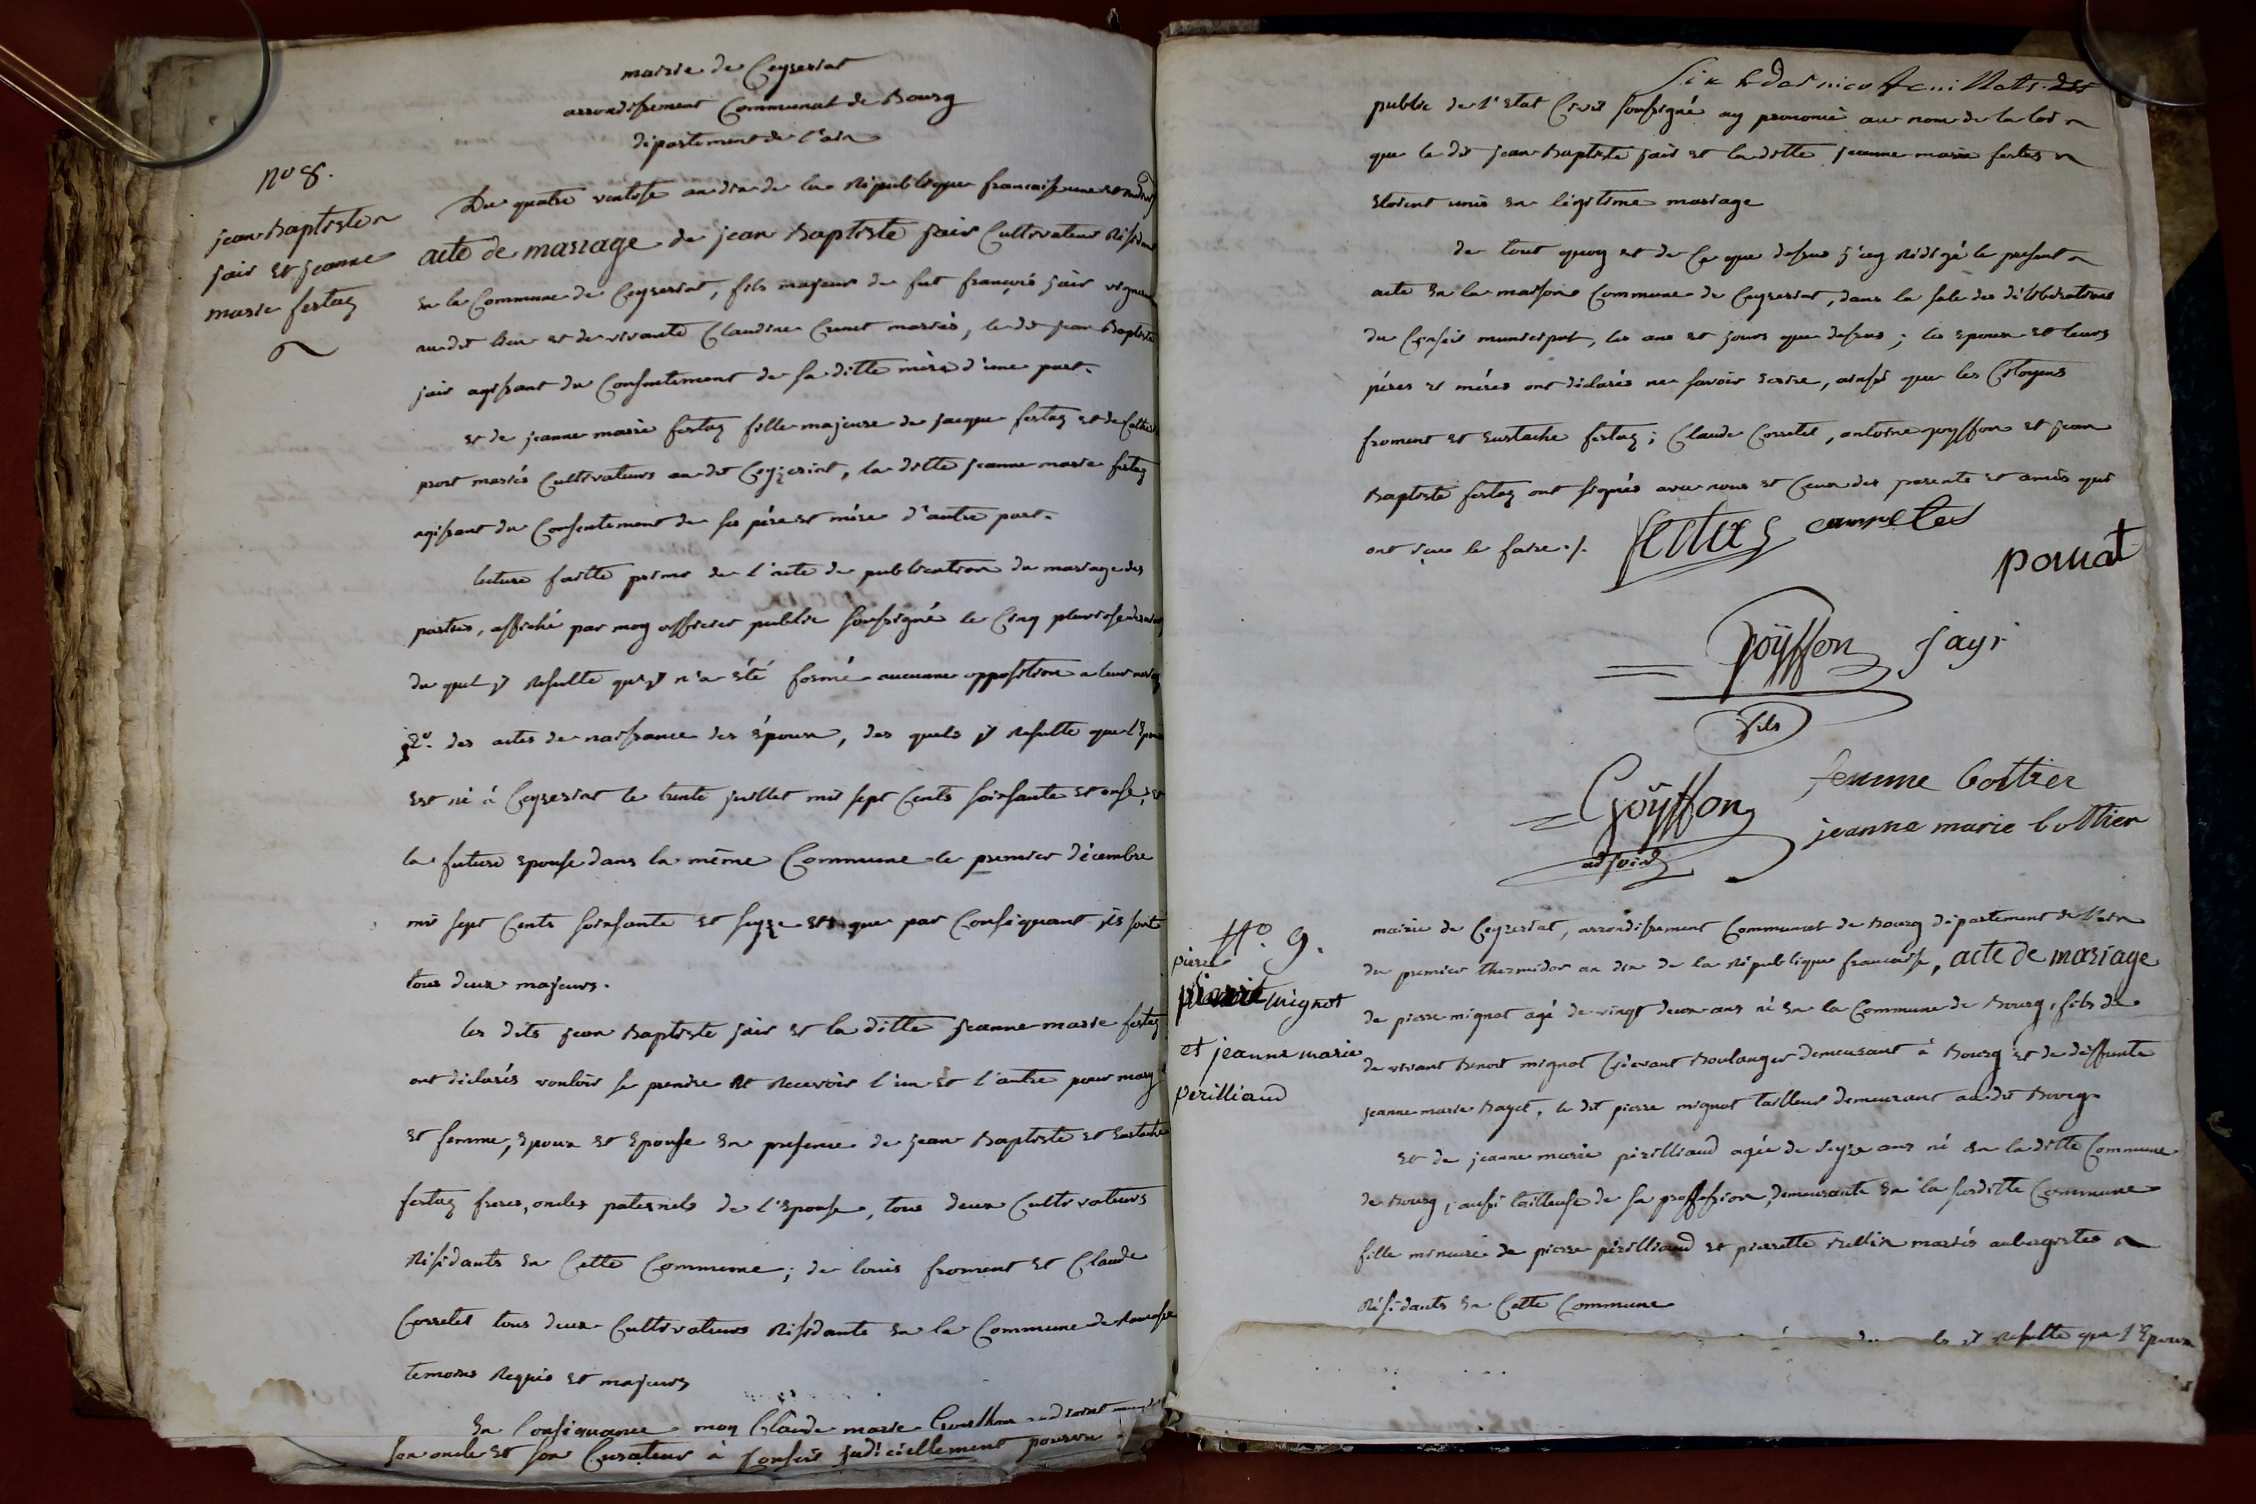 mairie de Ceyzeriat
arrondissement Communal de Bourg
département de l'ain
no 8.
jean Baptiste
jair et jeanne
marie fertaz
Du quatre ventose an dix de la République francaise une et indivi
acte de mariage de jean Baptiste jair Cultivateur Résidant
en la Commune de Ceyzeriat, fils majeur de fut françois jair vigneron
au dit lieu et de vivante Claudine Cunet mariés, le dit jean Baptiste
jair agissant du Consentement de sa ditte mère d'une part.
et de jeanne marie fertaz fille majeure de jacque fertaz et de Catherine
prost mariés Cultivateurs au dit Ceyzeriat, la ditte jeanne marie fertaz
agissant du Consentement de ses père et mère d'autre part.
lecture faitte primo de l'acte de publication du mariage des
parties, affiché par moy officier public soussigné le Cinq pluviose dernier
du quel y Resulte qu'y n'a été formé aucune opposition a leur mariage
2o. des actes de naissance des époux, des quels y Resulte que l'Epoux
est né à Ceyzeriat le trente juillet mil sept Cents soixsante et onse, et
la future epouse dans la même Commune le premier décembre
mil sept Cents soixsante et seyze et que par Conséquant ils sont
tous deux majeurs.
les dits jean Baptiste jair et la ditte jeanne marie fertaz
ont déclarés vouloir se prendre et Recevoir l'un et l'autre pour mary
et femme, Epoux et Epouse en presence de jean Baptiste et Eustache
fertaz freres, oncles paternels de l'Epouse, tous deux Cultivateurs
Résidants en Cette Commune; de louis froment et Claude
Corretel tous deux Cultivateurs Résidants en la Commune de
temoins Requis et majeurs
En Conséquance moy Claude marie Goyffon adjoint
son oncle et son Curateur à Conseil judiciellement pourvu
public de l'Etat Civil soussigné ay prononcé au nom de la loi
que le dit jean Baptiste jair et la ditte jeanne marie fertaz
Etoient unis en légitime mariage
de tout quoy et de Ce que dessus j'ay Rédigé le present
acte en la maison Commune de Ceyzeriat, dans la sale des délibérations
du Conseil municipal, les ans et jours que dessus; les Epoux et leurs
péres et méres ont déclarés ne savoir Ecrire, ainsi que les Citoyens
froment et Eustache fertaz; Claude Corretel, antoine goyffon et jean
Baptiste fertaz ont signés avec nous et Ceux des parents et amis qui
ont sçu le faire ./.
fertaz
Goÿffon jayr
fils
Goÿffon femme bottier
adjoint jeanne marie bottier
No. 9.
pierre
mignot
et jeanne marie
perilliaud
mairie de Ceyzeriat, arrondissement Communal de Bourg département de l'ain
du premier thermidor an dix de la République francaise, acte de mariage
de pierre mignot agé de vingt deux ans né en la Commune de Bourg, fils de
de vivant Benoit mignot Cidevant Boulanger demeurant à Bourg et de deffunte
jeanne marie Bayet, le dit pierre mignot tailleur demeurant au dit Bourg
et de jeanne marie périlliaud agée de seyze ans né en la ditte Commune
de Bourg, aussi tailleuse de sa proffession, demeurante en la susditte Commune
fille mineure de pierre périlliaud et pierrette mariés aubergistes
Résidants en Cette Commune
y Resulte que l'Epoux